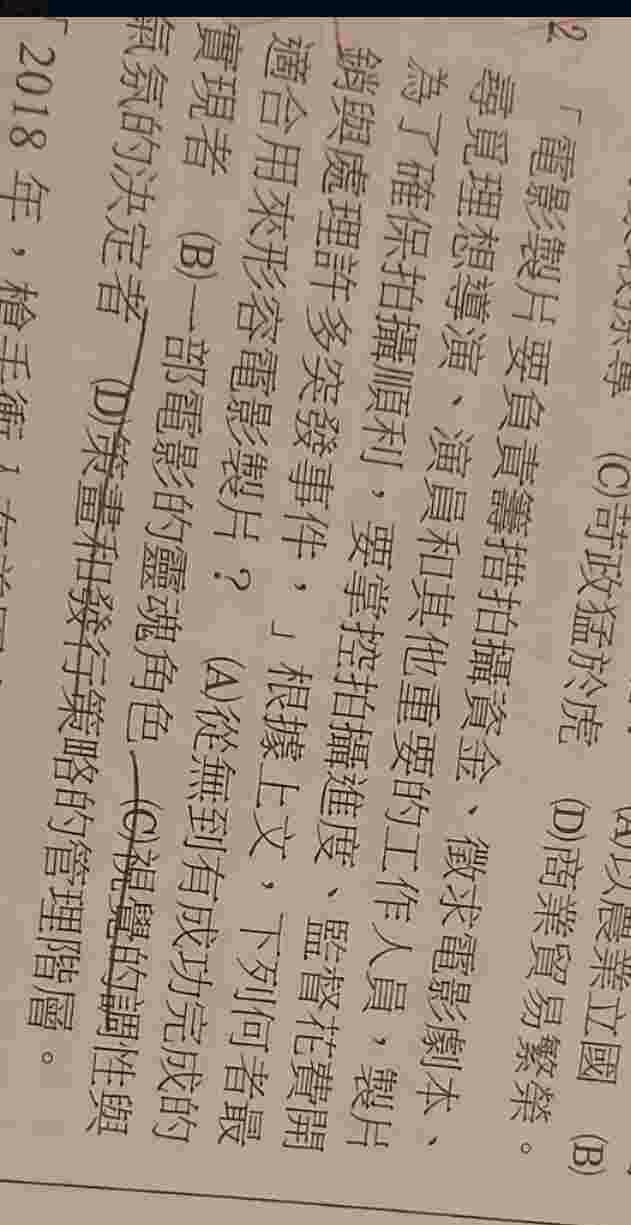 (A)以農業立國 (B)
(C)苛政猛於虎 (D)商業貿易繁榮。
2 「電影製片要負責籌措拍攝資金、徵求電影劇本、
尋覓理想導演、演員和其他重要的工作人員,製片
為了確保拍攝順利,要掌控拍攝進度、監督花費開
銷與處理許多突發事件,」根據上文,下列何者最
適合用來形容電影製片? (A)從無到有成功完成的
實現者 (B)一部電影的靈魂角色 (C)視覺的調性與
氣氛的決定者 (D)策畫和發行策略的管理階層。
「2018 年,槍手衝